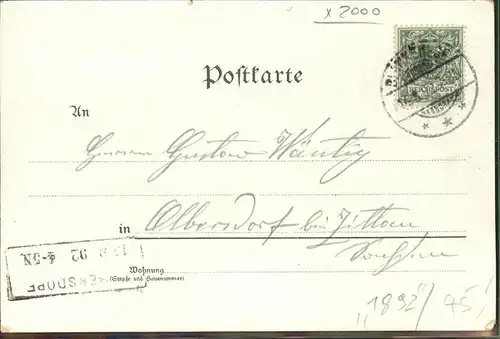 x 2000
REICHSPOST
Postkarte
An
Herrn Gustav Wäntig
in Olbersdorf bei Zittau
Sachsen
Wohnung
(Straße und Hausnummer)
92 4-5N.
ERSDORF
"1892" / 45,